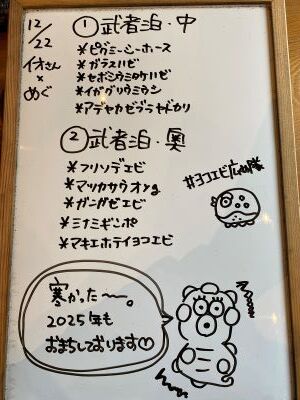 12/22
イオさん
×
めぐ
① 武者泊・中
*ピグミーシーホース
*ガラスハゼ
*セボシウミタケハゼ
*イガグリウミウシ
*アデヤカゼブラヤドカリ
② 武者泊・奥
*フリソデエビ
*マツカサウオyg
*ガンガゼエビ
*ミナミギンポ
*マキエホテイヨコエビ
#ヨコエビ広め隊
寒かったー。
2025年も
おまちしております♡